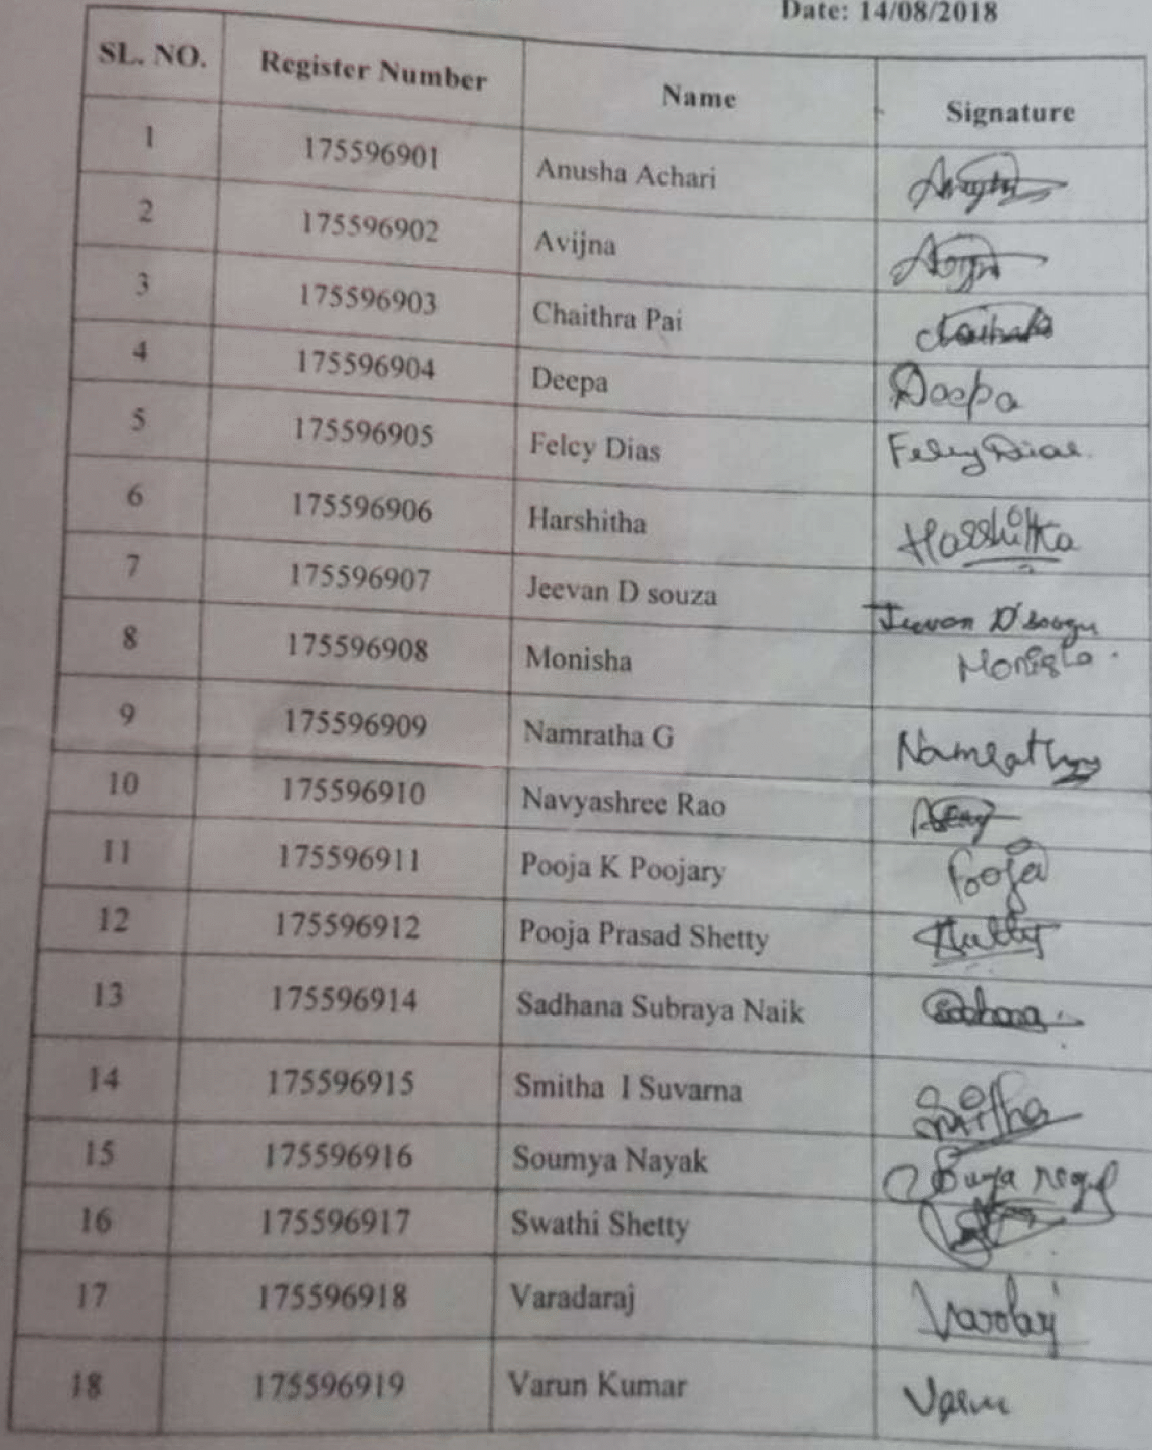 Date: 14/08/2018
SL. NO. Register Number Name Signature
1 175596901 Anusha Achari
2 175596902 Avijna
3 175596903 Chaithra Pai
4 175596904 Deepa Deepa
5 175596905 Felcy Dias Felcy Dias
6 175596906 Harshitha Harshitha
7 175596907 Jeevan D souza Jeevan D'souza
8 175596908 Monisha Monisha
9 175596909 Namratha G Namratha
10 175596910 Navyashree Rao
11 175596911 Pooja K Poojary Pooja
12 175596912 Pooja Prasad Shetty
13 175596914 Sadhana Subraya Naik Sadhana
14 175596915 Smitha I Suvarna Smitha
15 175596916 Soumya Nayak
16 175596917 Swathi Shetty
17 175596918 Varadaraj Varadaraj
18 175596919 Varun Kumar Varun